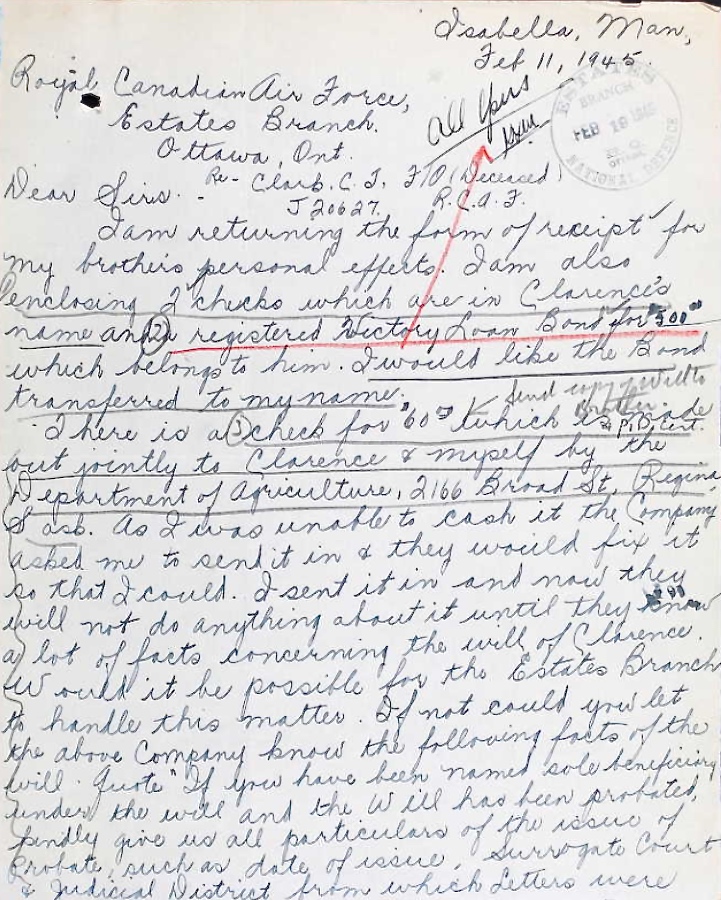 Isabella, Man,
Feb 11, 1945.
Royal Canadian Air Force,
Estates Branch.
Ottawa, Ont.
ESTATES
BRANCH
FEB 19 1945
NATIONAL DEFENCE
Re- Clark. C. J. F/O (Deceased)
J 20627. R.C.A.F.
Dear Sirs. -
I am returning the form of receipt for
my brothers personal effects. I am also
enclosing 2 checks which are in Clarence's
name and (2) a registered Victory Loan Bond for $500
which belongs to him. I would like the Bond
transferred to my name.
Send copy of Will to
Brother
& P.D. Cert.
There is a (3) check for $60 which is made
out jointly to Clarence & myself by the
Department of Agriculture, 2166 Broad St, Regina
Sask. As I was unable to cash it the Company
asked me to send it in & they would fix it
so that I could. I sent it in and now they
will not do anything about it until they know
a lot of facts concerning the will of Clarence.
Would it be possible for the Estates Branch
to handle this matter. If not could you let
the above Company know the following facts of the
will. Quote "If you have been named sole beneficiary
under the will and the Will has been probated,
kindly give us all particulars of the issue of
Probate, such as date of issue, Surrogate Court
& Judicial District from which Letters were